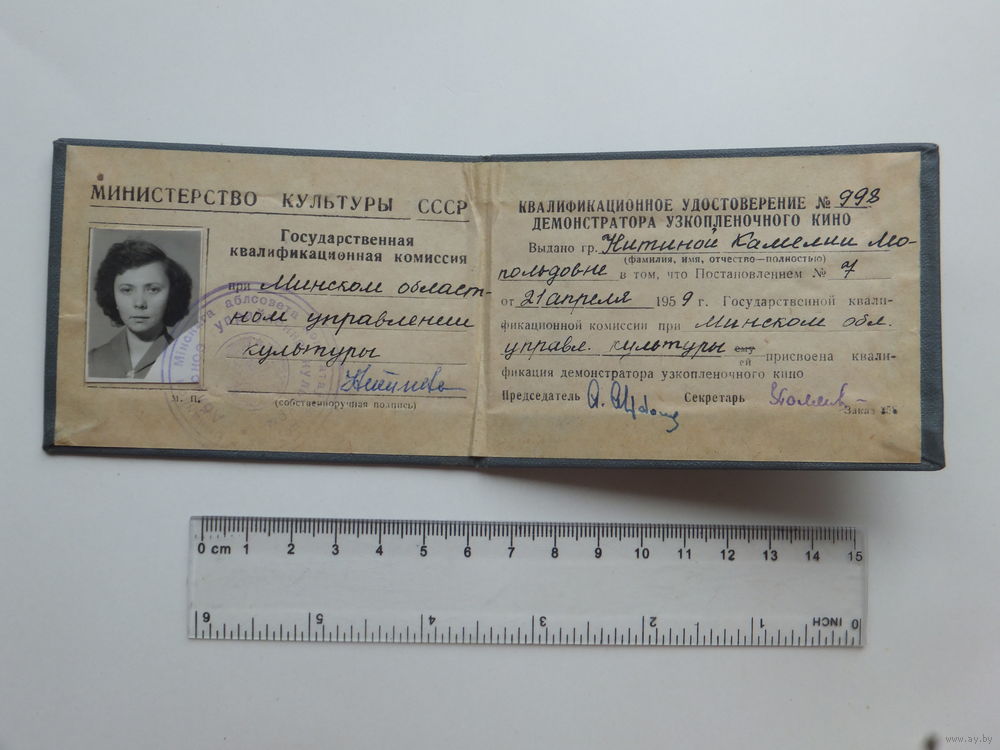 МИНИСТЕРСТВО КУЛЬТУРЫ СССР
Государственная
квалификационная комиссия
при Минском област-
ном управлении
культуры
М. П.
(собственноручная подпись)
КВАЛИФИКАЦИОННОЕ УДОСТОВЕРЕНИЕ № 998
ДЕМОНСТРАТОРА УЗКОПЛЕНОЧНОГО КИНО
Выдано гр. Китиной Камелии Мо-
(фамилия, имя, отчество—полностью)
польдовне в том, что Постановлением № 7
от 21 апреля 1959 г. Государственной квали-
фикационной комиссии при Минском обл.
управл. культуры ему
ей присвоена квали-
фикация демонстратора узкопленочного кино
Председатель Секретарь
Заказ
0 cm 1 2 3 4 5 6 7 8 9 10 11 12 13 14 15
6 5 4 3 2 1 INCH 0
www.ay.by